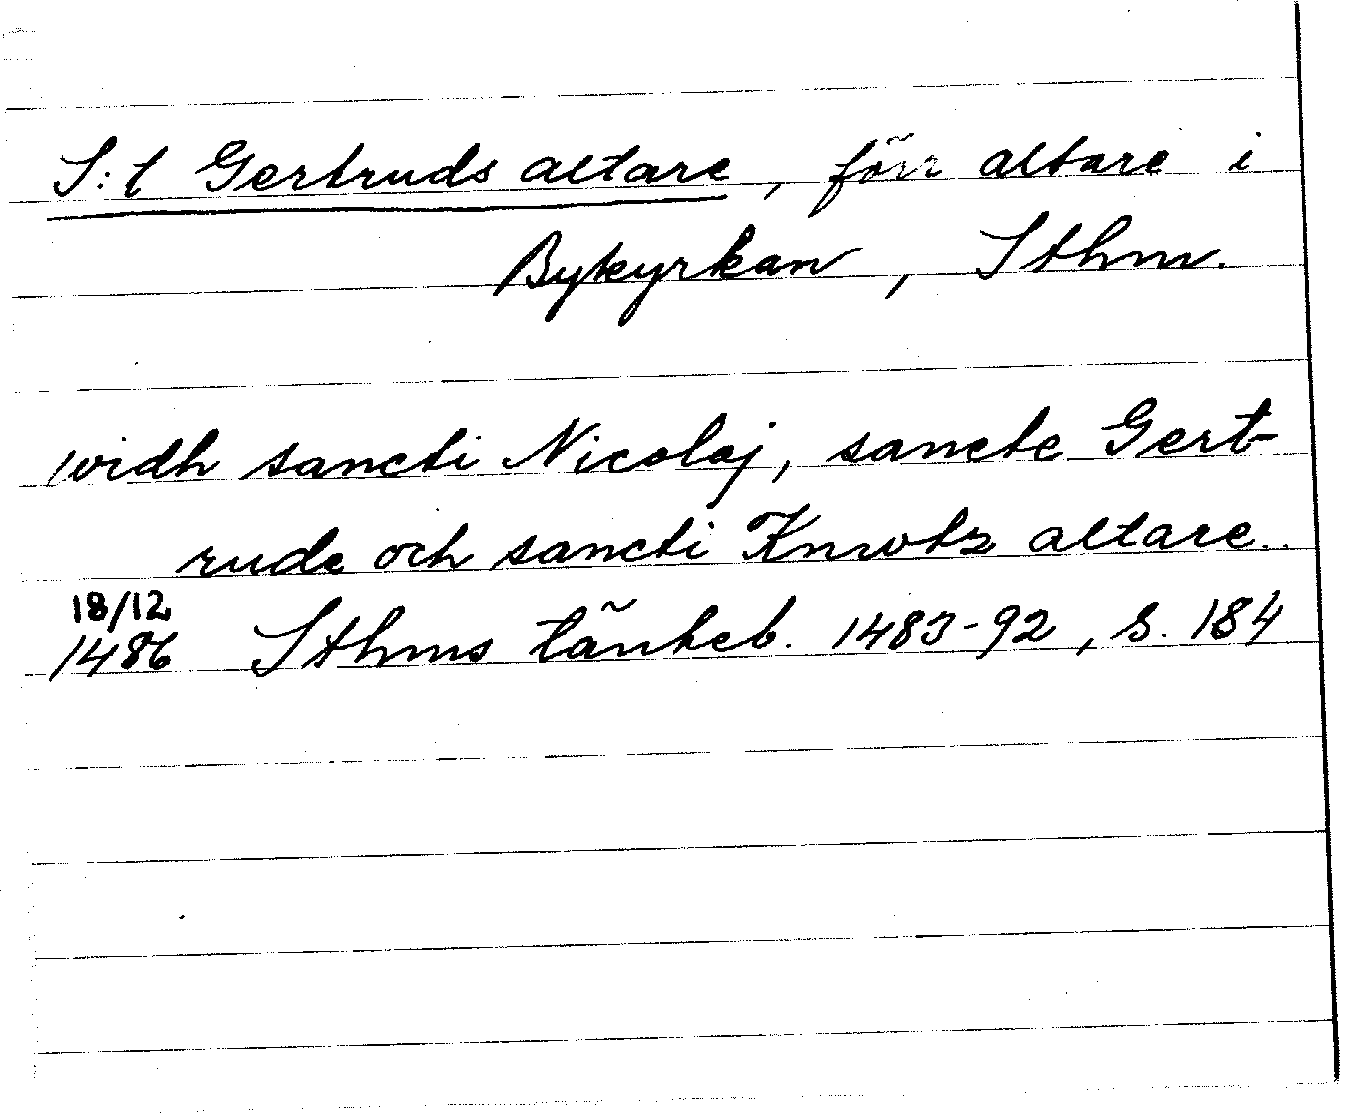 S:t Gertruds altare, förr altare i
Bykyrkan, Sthm.
widh sancti Nicolaj, sancte Gert-
rude och sancti Knwtz altare..
18/12
1486 Sthms tänkeb. 1483-92, s. 184